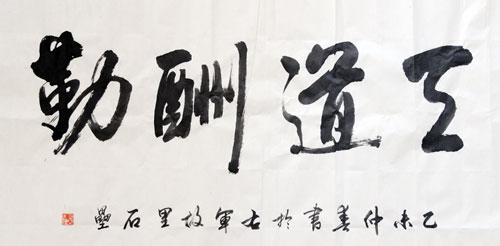 天道酬勤
乙未仲春書於右軍故里石壘